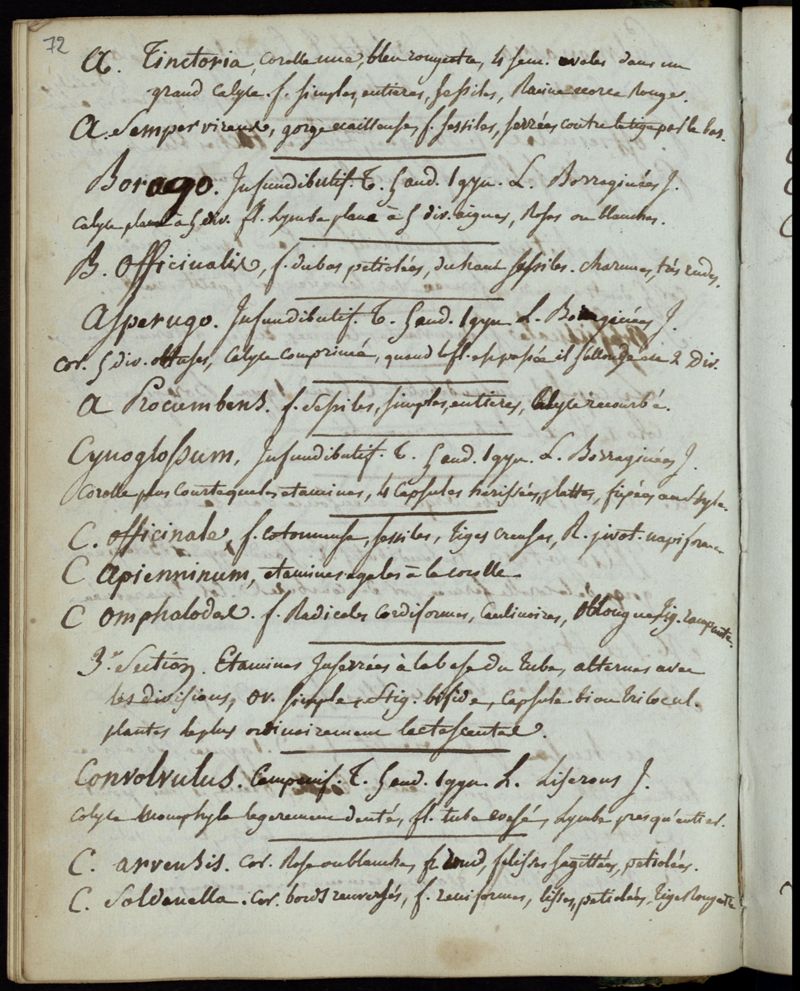 72
A. Tinctoria, corolle nue, bleu rougeatre, 4 sem. ovales dans un
grand Calyce. f. simples, entieres, sessiles, Racine ecorce Rouge.
A. Sempervirens, gorge ecailleuse, f. sessiles, serrées contre la tige par le bas.
Borago. Infundibulif. T. 5 and. 1 gyn. L. Borraginées J.
Calyce plane à 5 div. fl. Lymbe plane à 5 div. aigues, Roses ou blanches.
B. Officinalis, f. du bas petiolées, du haut sessiles. charnues, très rudes.
Asperugo. Infundibulif. T. 5 and. 1 gyn. L. Borraginées J.
cor. 5 div. obtuses, Calyce comprimé, quand la fl. est passée il s'allonge en 2 Div.
A Procumbens. f. sessiles, simples, entieres, Calyce recourbé.
Cynoglossum, Infundibulif. T. 5 and. 1 gyn. L. Borraginées J.
Corolle plus courte que les etamines, 4 Capsules herissées, plattes, fixées au style.
C. officinale, f. cotonneuses, sessiles, tiges creuses, R. pivot. napiforme
C apienninum, etamines egales à la corolle
C omphalodes. f. Radicales Cordiformes, Caulinaires, oblongues Tig. rampante.
3e. Section. Etamines Inserrées à la base du tube, alternes avec
les divisions, ov. simple. Stig. bifide, Capsule bi ou trilocul.
plantes le plus ordinairement lactescentes.
Convolvulus. Campanif. T. 5 and. 1 gyn. L. Liserons J.
Calyce monophyle legerement denté, fl. tube evasé, Lymbe presqu'entier.
C. arvensis. cor. Rose ou blanche, sagittées, petiolées.
C. Soldanella. cor. bords renversés, f. reniformes, lisses, petiolées, Tiges rougeatre